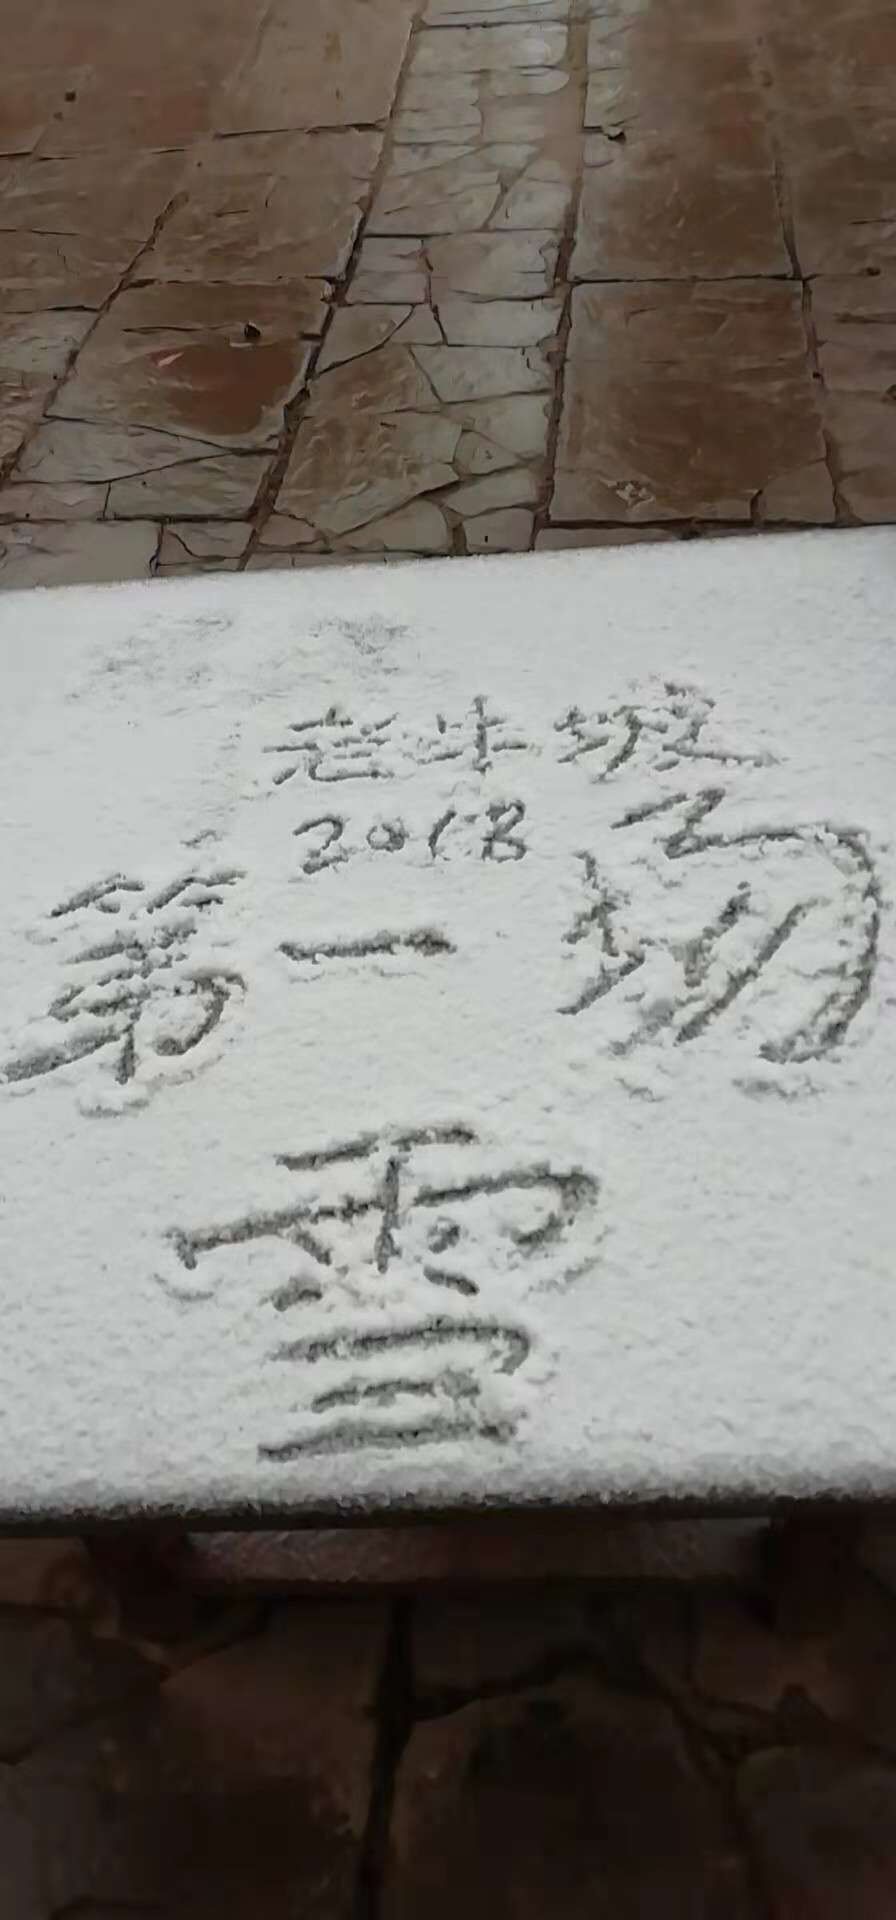 老牛坡
2018
第一场
雪